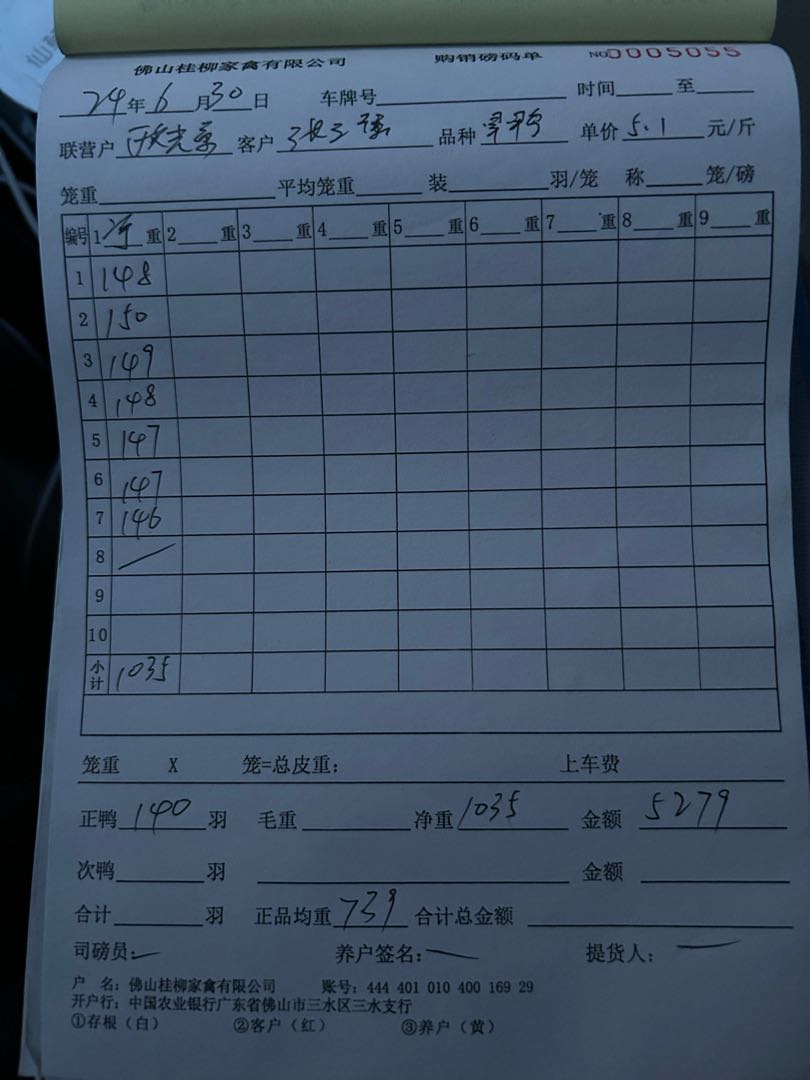 佛山桂柳家禽有限公司 购销磅码单 NO0005055
24年6月30日 车牌号 时间 至
联营户 客户 品种 单价5.1元/斤
笼重 平均笼重 装 羽/笼 称 笼/磅
编号 1净重 2 重 3 重 4 重 5 重 6 重 7 重 8 重 9 重
1 148
2 150
3 149
4 148
5 147
6 147
7 146
8
9
10
小计 1035
笼重 X 笼=总皮重： 上车费
正鸭140羽 毛重 净重1035 金额 5279
次鸭 羽 金额
合计 羽 正品均重739 合计总金额
司磅员： 养户签名： 提货人：
户 名：佛山桂柳家禽有限公司 账号：444 401 010 400 169 29
开户行：中国农业银行广东省佛山市三水区三水支行
①存根（白） ②客户（红） ③养户（黄）